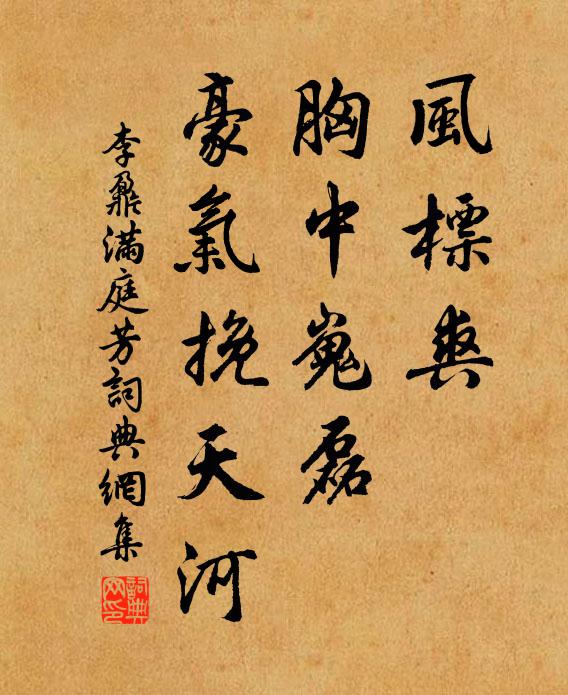 風標爽
胸中嵬磊
豪氣挽天河
李鼐滿庭芳詞典網集
詞典
网印